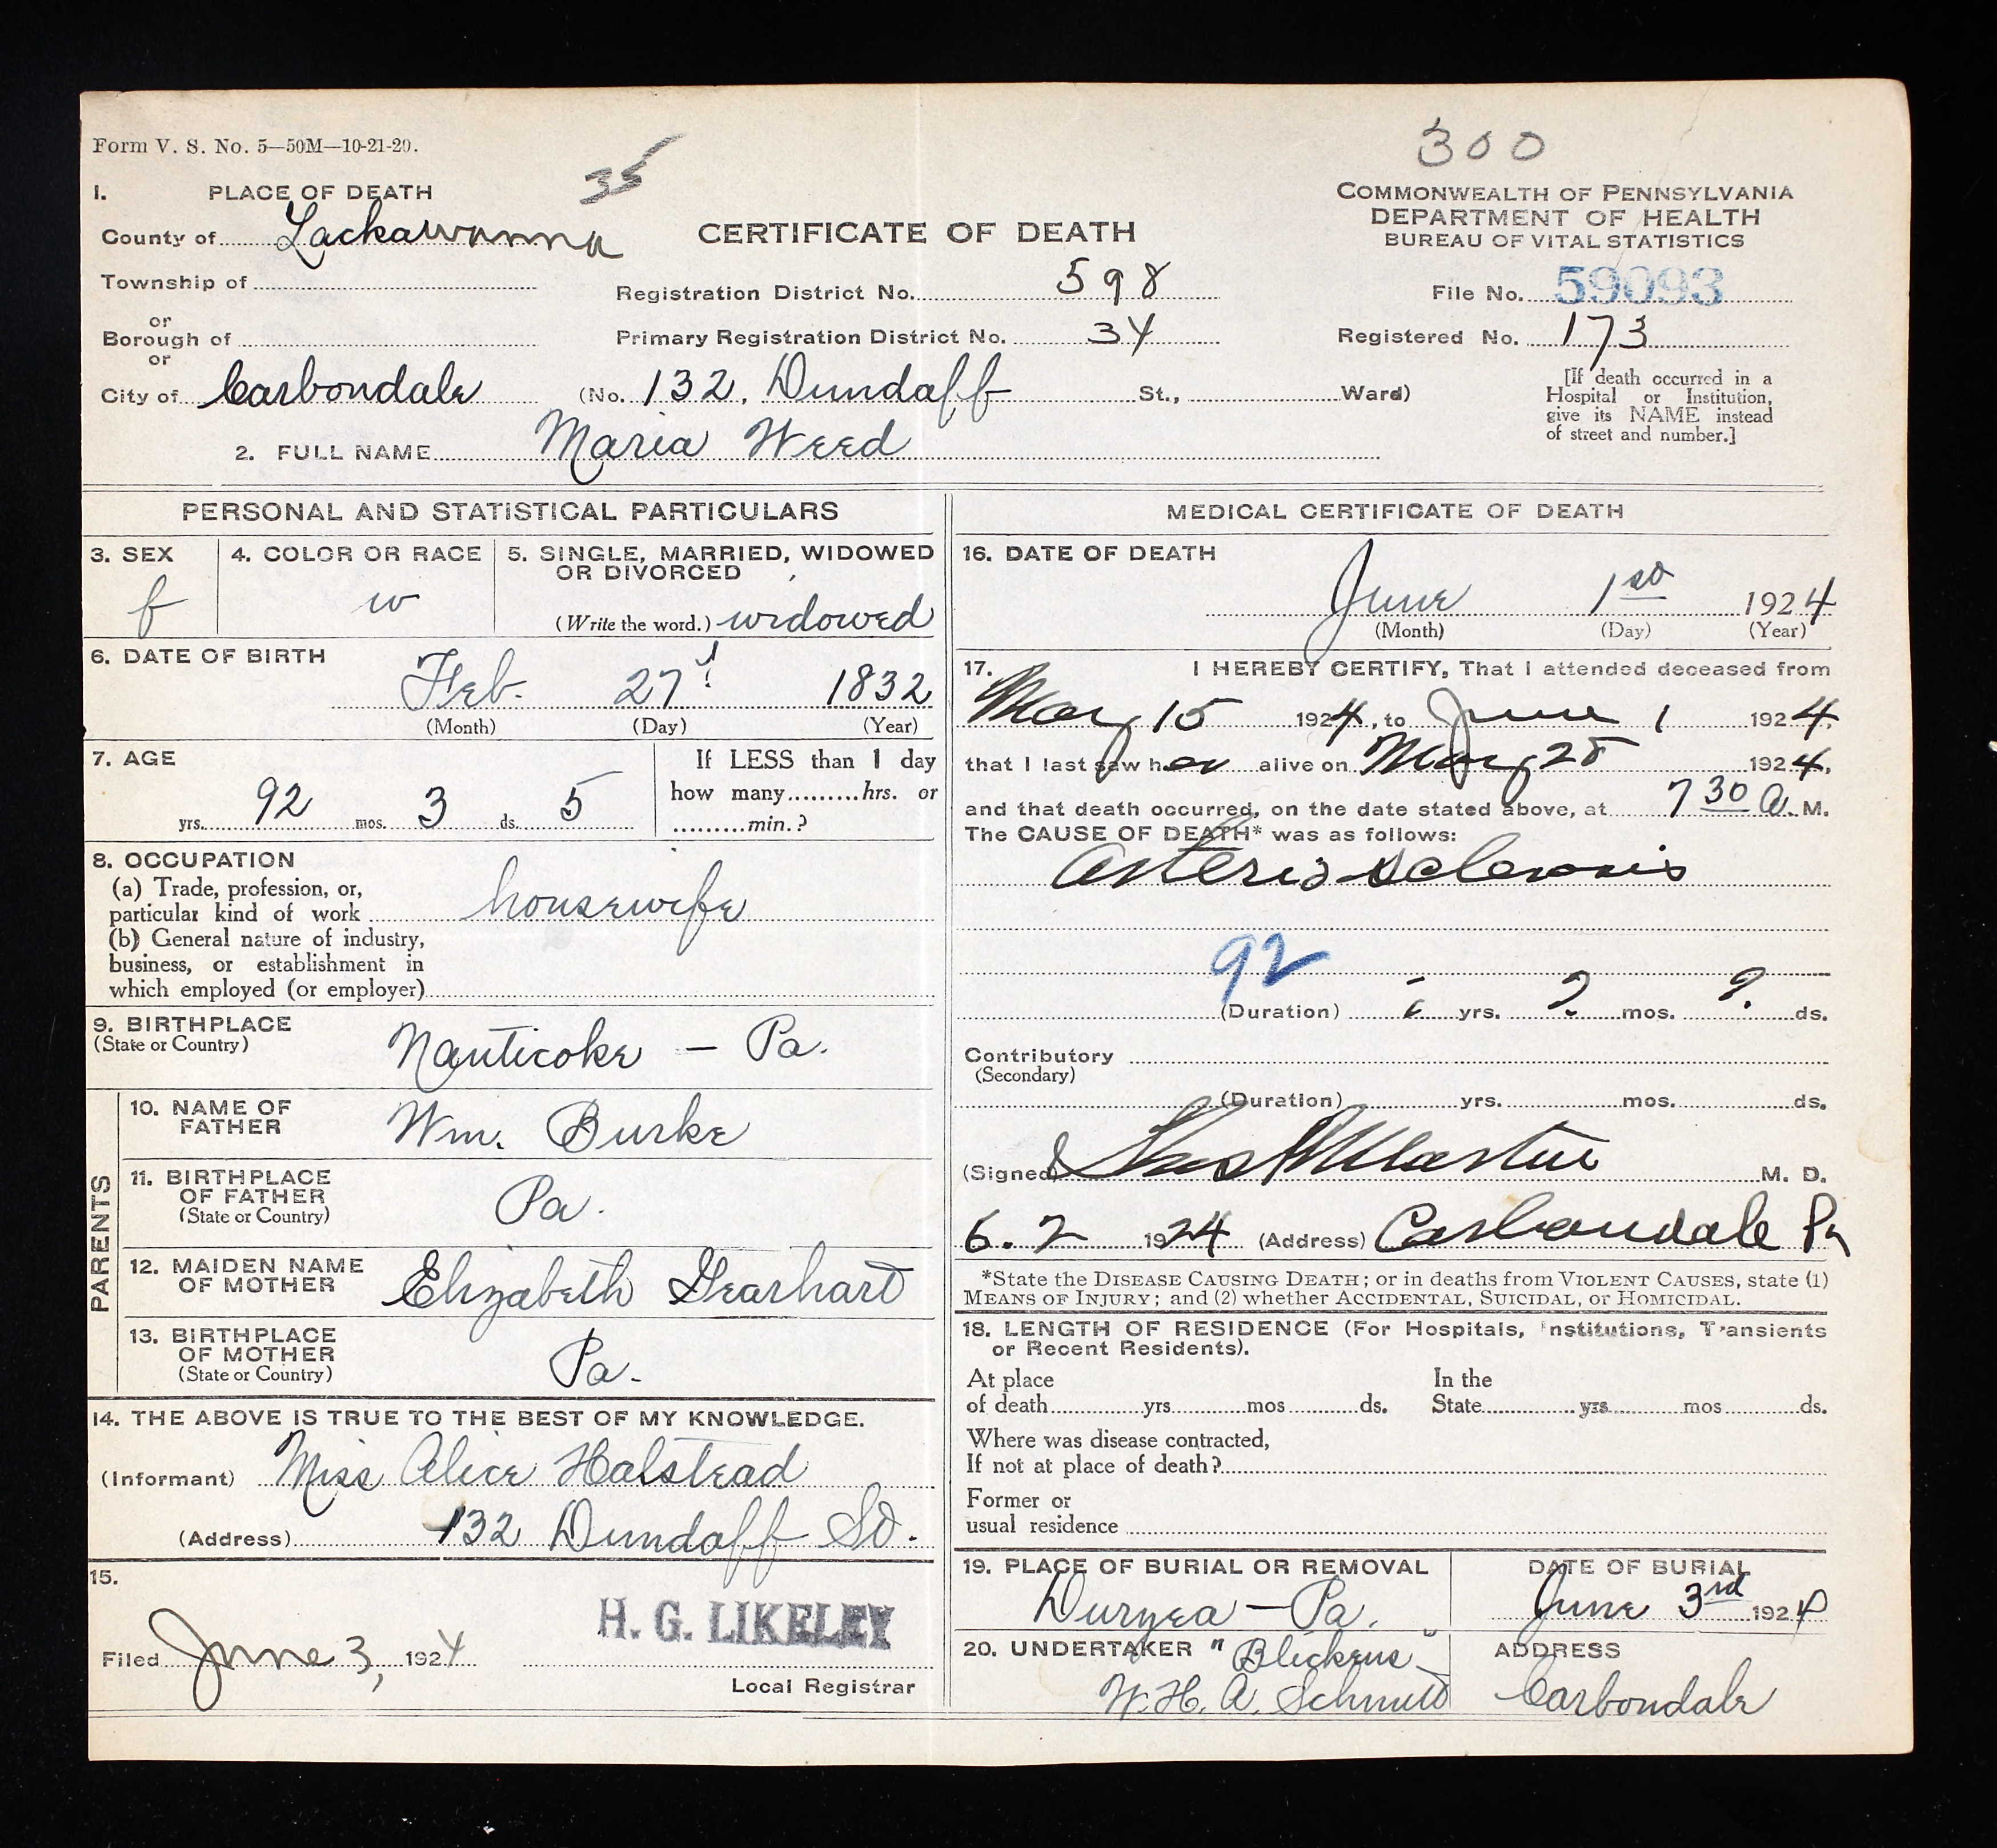 Form V. S. No. 5—50M—10-21-20.
35
300
1. PLACE OF DEATH
County of Lackawanna
Township of
or
Borough of
or
City of Carbondale
CERTIFICATE OF DEATH
Registration District No. 598
Primary Registration District No. 34
(No. 132, Dundaff St., Ward)
COMMONWEALTH OF PENNSYLVANIA
DEPARTMENT OF HEALTH
BUREAU OF VITAL STATISTICS
File No. 59093
Registered No. 173
[If death occurred in a
Hospital or Institution,
give its NAME instead
of street and number.]
2. FULL NAME Maria Weed
PERSONAL AND STATISTICAL PARTICULARS
3. SEX
f
4. COLOR OR RACE
w
5. SINGLE, MARRIED, WIDOWED
OR DIVORCED
(Write the word.) widowed
6. DATE OF BIRTH
Feb. 27 1832
(Month) (Day) (Year)
7. AGE
yrs. 92 mos. 3 ds. 5
If LESS than 1 day
how many.........hrs. or
.........min.?
8. OCCUPATION
(a) Trade, profession, or,
particular kind of work housewife
(b) General nature of industry,
business, or establishment in
which employed (or employer)
9. BIRTHPLACE
(State or Country)
Nanticoke — Pa.
PARENTS
10. NAME OF
FATHER
Wm. Burke
11. BIRTHPLACE
OF FATHER
(State or Country)
Pa.
12. MAIDEN NAME
OF MOTHER
Elizabeth Gearhart
13. BIRTHPLACE
OF MOTHER
(State or Country)
Pa.
14. THE ABOVE IS TRUE TO THE BEST OF MY KNOWLEDGE.
(Informant) Miss Alice Halstead
(Address) 132 Dundaff St.
15.
Filed June 3, 1924
H. G. LIKELEY
Local Registrar
MEDICAL CERTIFICATE OF DEATH
16. DATE OF DEATH
June 1st 1924
(Month) (Day) (Year)
17. I HEREBY CERTIFY, That I attended deceased from
May 15 1924, to June 1 1924,
that I last saw her alive on May 28 1924,
and that death occurred, on the date stated above, at 7 30 A. M.
The CAUSE OF DEATH* was as follows:
Arterio sclerosis
92
(Duration) ? yrs. ? mos. ? ds.
Contributory
(Secondary)
(Duration) yrs. mos. ds.
(Signed) M. D.
6. 2 1924 (Address) Carbondale Pa
*State the DISEASE CAUSING DEATH; or in deaths from VIOLENT CAUSES, state (1)
MEANS OF INJURY; and (2) whether ACCIDENTAL, SUICIDAL, or HOMICIDAL.
18. LENGTH OF RESIDENCE (For Hospitals, Institutions, Transients
or Recent Residents).
At place
of death yrs. mos ds.
In the
State yrs. mos ds.
Where was disease contracted,
If not at place of death?
Former or
usual residence
19. PLACE OF BURIAL OR REMOVAL
Duryea — Pa.
DATE OF BURIAL
June 3rd 1924
20. UNDERTAKER "Blickens"
W. H. A. Schmitt
ADDRESS
Carbondale